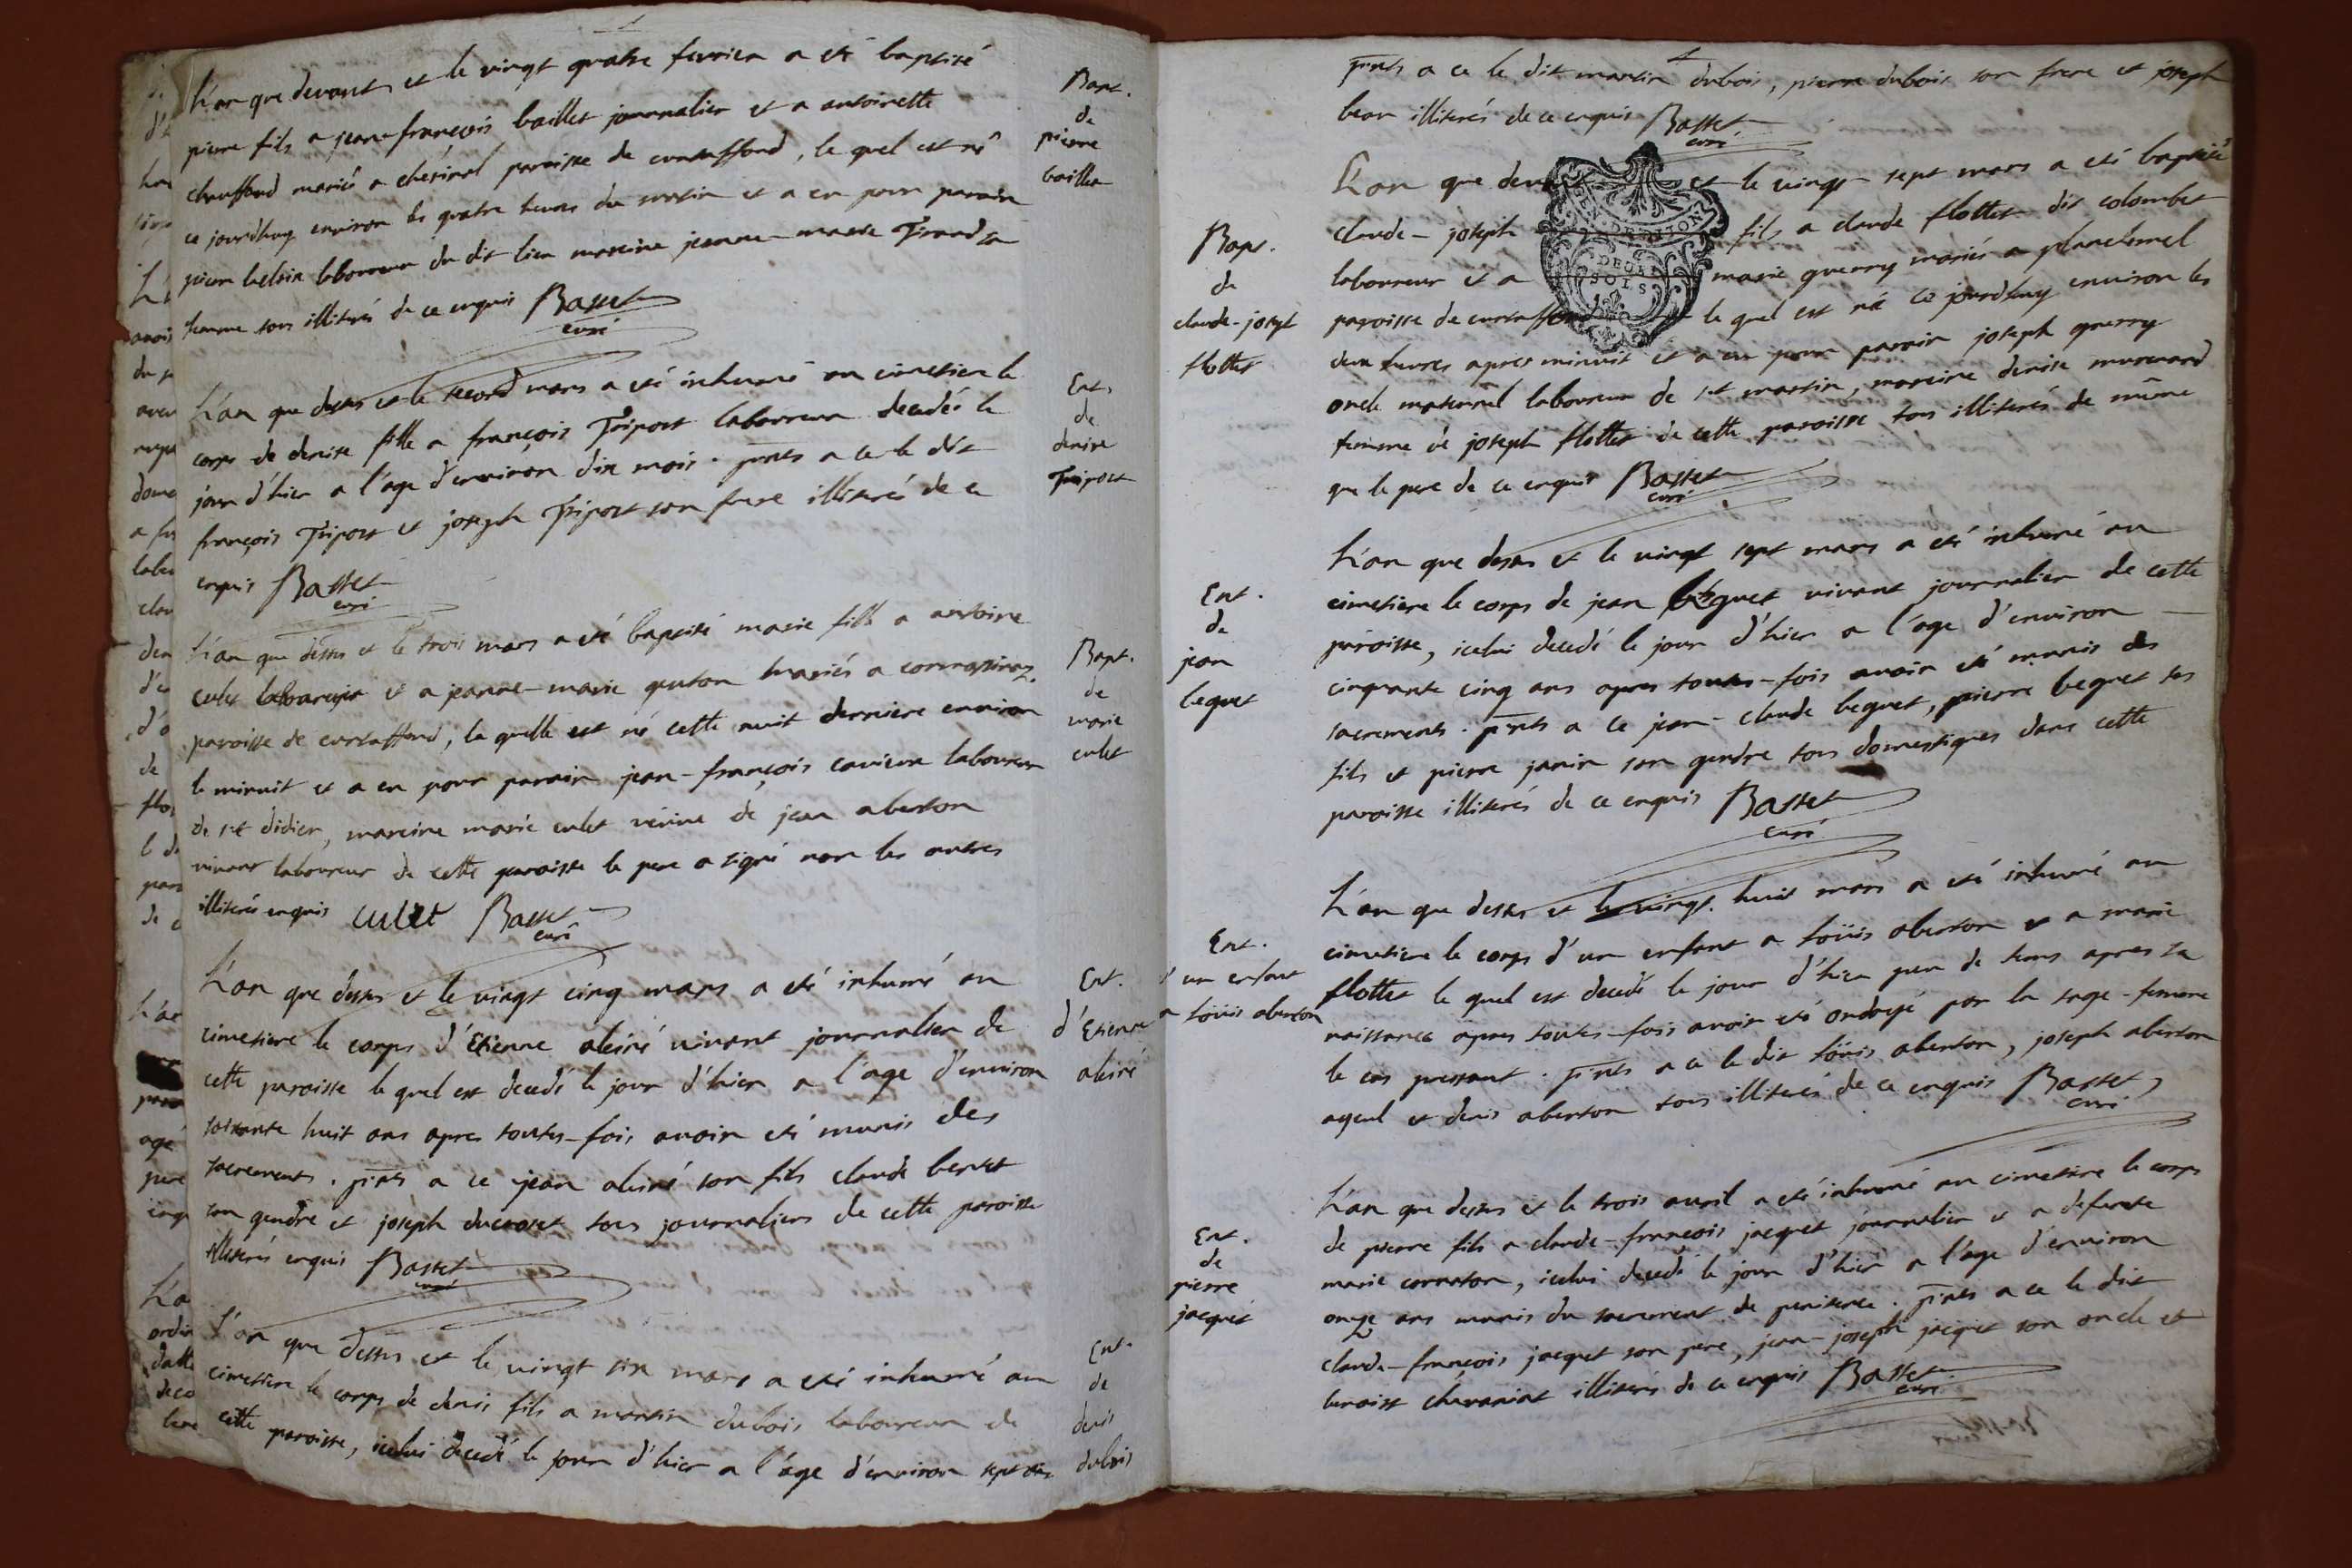 L'an que devant et le vingt quatre fevrier a eté baptisé
pierre fils a jean-françois baillet journalier et a antoinette
chauffard mariés a chésinal paroisse de curtaffond, le quel est né
ce jourdhuy environ les quatre heures du matin et a eu pour parain
pierre laboureur du dit lieu mareine jeanne-marie Tirand sa
femme tous illiterés de ce enquis Basset
curé
Bapt.
de
pierre
baillet
L'an que dessus et le second mars a eté inhumé au cimetiere le
corps de denise fille a françois Tripoz laboureur decedée le
jour d'hier a l'age d'environ dix mois. pnts a ce le dit
françois Tripoz et joseph Tripoz son frere illiterés de ce
enquis Basset
curé
Ent.
de
denise
Tripoz
L'an que dessus et le trois mars a eté baptisé marie fille a antoine
culet laboureur et a jeanne-marie guton mariés a
paroisse de curtaffond, la quelle est né cette nuit derniere environ
le minuit et a eu pour parain jean-françois cavieux laboureur
de st didier, mareine marie culet vëuve de jean aberton
vivant laboureur de cette paroisse le pere a signé non les autres
illiterés enquis culet Basset
curé
Bapt.
de
marie
culet
L'an que dessus et le vingt cinq mars a eté inhumé au
cimetiere le corps d'Etienne alesné vivant journalier de
cette paroisse le quel est decedé le jour d'hier a l'age d'environ
soixante huit ans apres toutes-fois avoir eté munis des
sacrements. pnts a ce jean alesné son fils claude
son gendre et joseph ducroset tous journaliers de cette paroisse
illiterés enquis Basset
curé
Ent.
d'Etienne
alesné
L'an que dessus et le vingt six mars a eté inhumé au
cimetiere le corps de denis fils a martin dubois laboureur de
cette paroisse, icelui decedé le jour d'hier a l'âge d'environ sept ans
Ent.
de
denis
dubois
pnts a ce le dit martin dubois, pierre dubois son frere et joseph
bean illiterés de ce enquis Basset
curé
L'an que et le vingt sept mars a eté baptisé
claude-joseph fils a claude flottet dit colombet
laboureur et a marie guerry mariés a planchemel
paroisse de curtaffond le quel est né ce jourdhuy environ les
deux heures apres minuit et a eu pour parain joseph guerry
oncle maternel laboureur de st martin, mareine denise
femme de joseph flottet de cette paroisse tous illiterés de même
que le pere de ce enquis Basset
curé
Bapt.
de
claude-joseph
flottet
L'an que dessus et le vingt sept mars a eté inhumé au
cimetiere le corps de jean beguet vivant journalier de cette
paroisse, icelui decedé le jour d'hier a l'âge d'environ
cinquante cinq ans apres toutes-fois avoir eté munis des
sacrements. pnts a ce jean-claude beguet, pierre beguet ses
fils et pierre janin son gendre tous domestiques dans cette
paroisse illiterés de ce enquis Basset
curé
Ent.
de
jean
beguet
L'an que dessus et le vingt huit mars a eté inhumé au
cimetiere le corps d'un enfant a loüis aberton et a marie
flottet le quel est decedé le jour d'hier peu de tems apres sa
naissance apres toutes-fois avoir eté ondoyé par la sage-femme
le cas pressant. pnts a ce le dit loüis aberton, joseph aberton
ayeul et denis aberton tous illiterés de ce enquis Basset
curé
Ent.
d'un enfant
a loüis aberton
L'an que dessus et le trois avril a eté inhumé au cimetiere le corps
de pierre fils a claude-françois jacquet journalier et a defunte
marie cornaton, icelui decedé le jour d'hier a l'age d'environ
onze ans munis du sacrement de penitence. pnts a ce le dit
claude-françois jacquet son pere, jean-joseph jacquet son oncle et
benoist illiterés de ce enquis Basset
curé
Ent.
de
pierre
jacquet